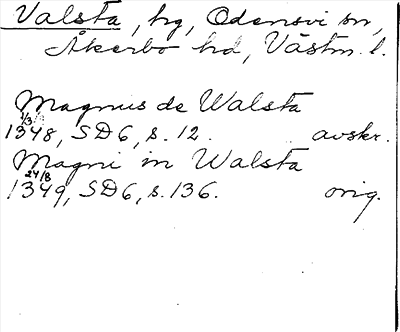 Valsta, hg, Odensvi sn,
Åkerbo hd, Västm. l.
Magnus de Walsta
1/3 1348, SD6, s. 12. avskr.
Magni in Walsta
24/8 1349, SD6, s. 136. orig.